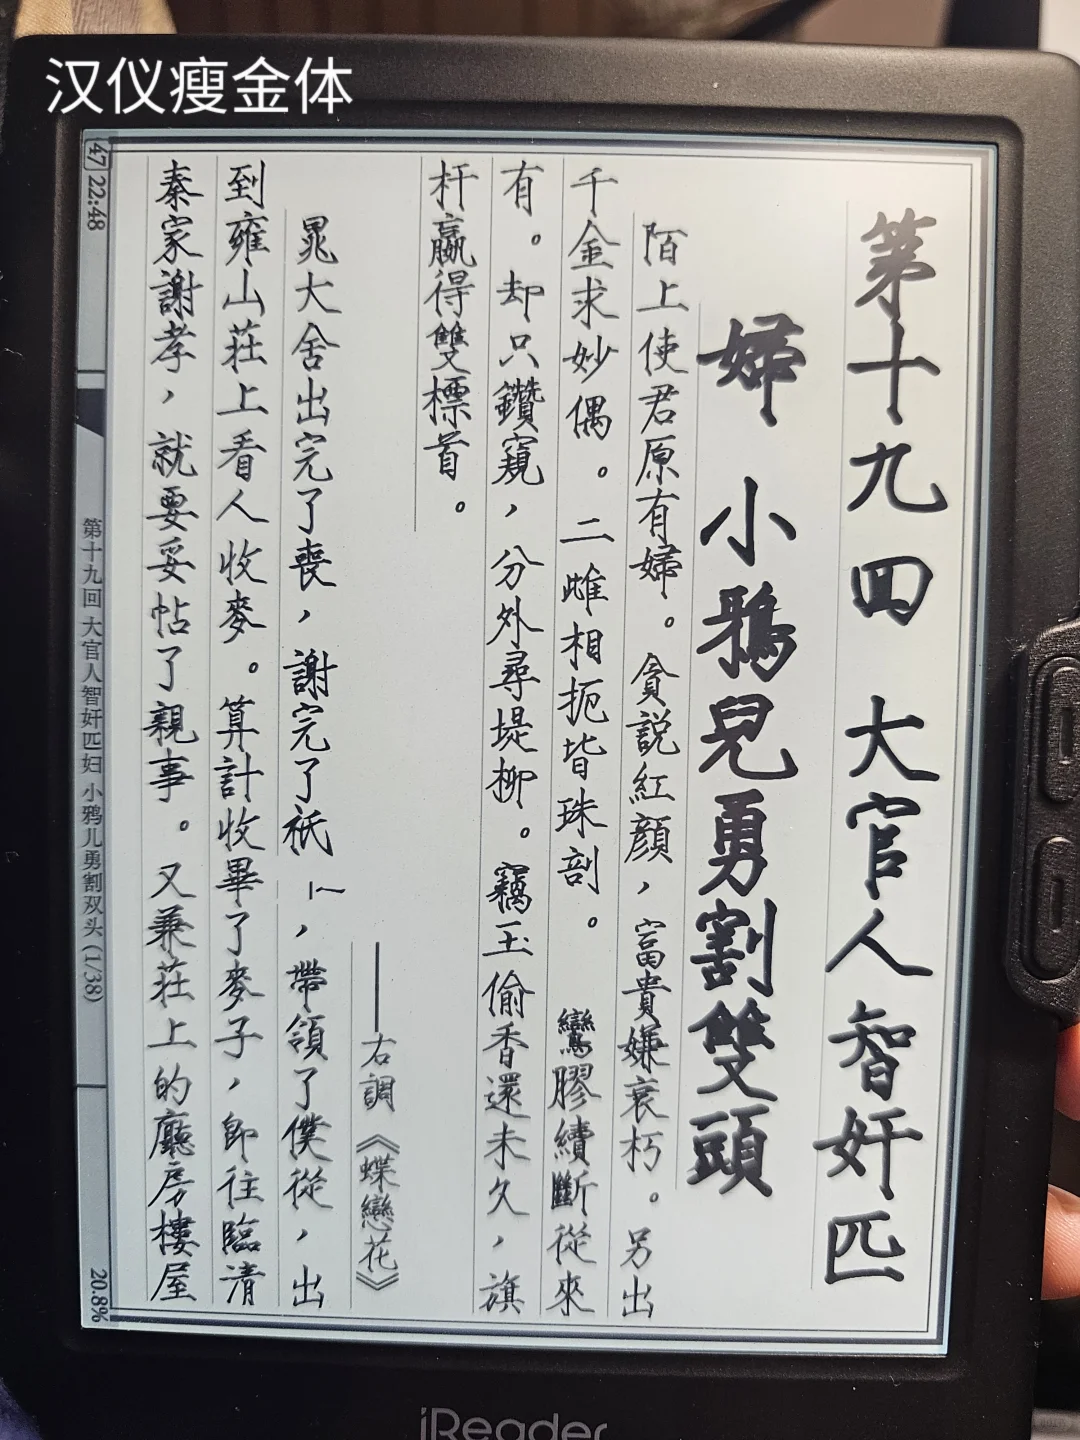 汉仪瘦金体
第十九回 大官人智奸匹
婦 小鴉兒勇割雙頭
陌上使君原有婦。貪説紅顔，富貴嫌衰朽。另出
千金求妙偶。二雌相扼皆珠剖。 鸞膠續斷從來
有。却只鑽窺，分外尋堤柳。竊玉偷香還未久，旗
杆贏得雙標首。
——右調《蝶戀花》
晁大舍出完了喪，謝完了祇，帶領了僕從，出
到雍山莊上看人收麥。算計收畢了麥子，即往臨清
秦家謝孝，就要妥帖了親事。又兼莊上的廳房樓屋
47 22:48
第十九回 大官人智奸匹妇 小鸦儿勇割双头 (1/38)
20.8%
iReader